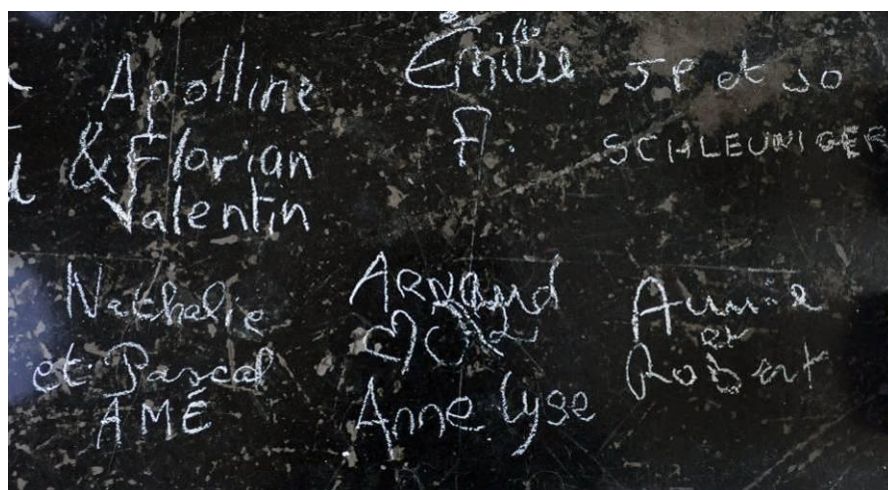 Apolline
& Florian
Valentin
Émilie
F.
JP et JO
SCHLEUNIGER
Nathalie
et Pascal
AMÉ
Arnaud
Anne Lyse
Annie
et
Robert